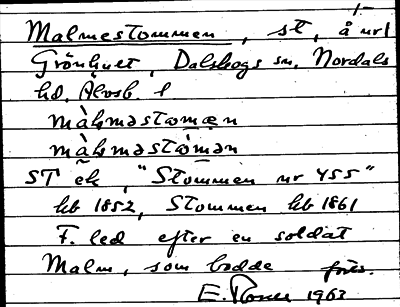 1-
Malmestommen, st, å nr 1
Grönhult, Dalskogs sn, Nordals
hd, Älvsb. l
màḷməstɷmæn
màḷməstɷ̀mən
ST ek, "Stommen nr 455"
hb 1852, Stommen hb 1861
F. led efter en soldat
Malm, som bodde förs.
E. 1963